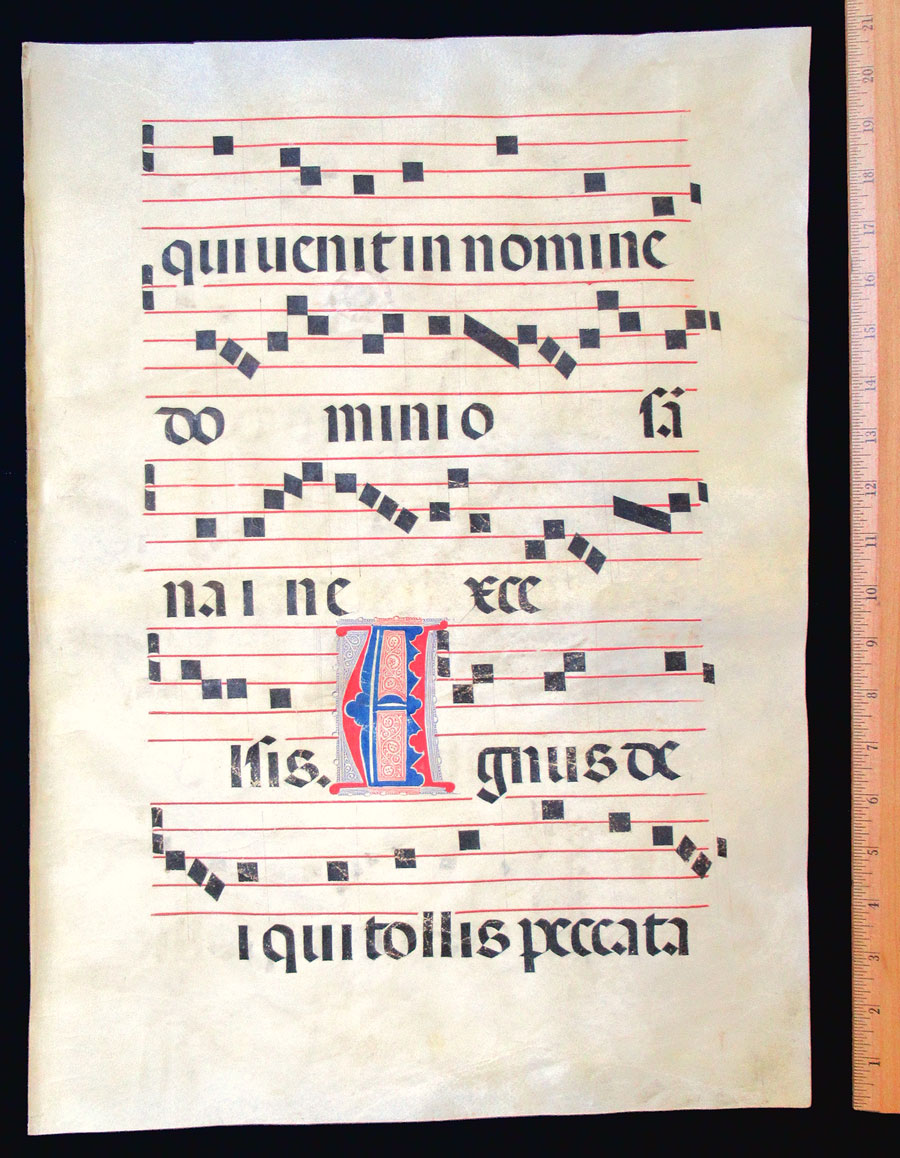 qui uenit in nomine
do mini o sā
na i ne xce
lsis. A gnus de
i qui tollis peccata
21
20
19
18
17
16
15
14
13
12
11
10
9
8
7
6
5
4
3
2
1